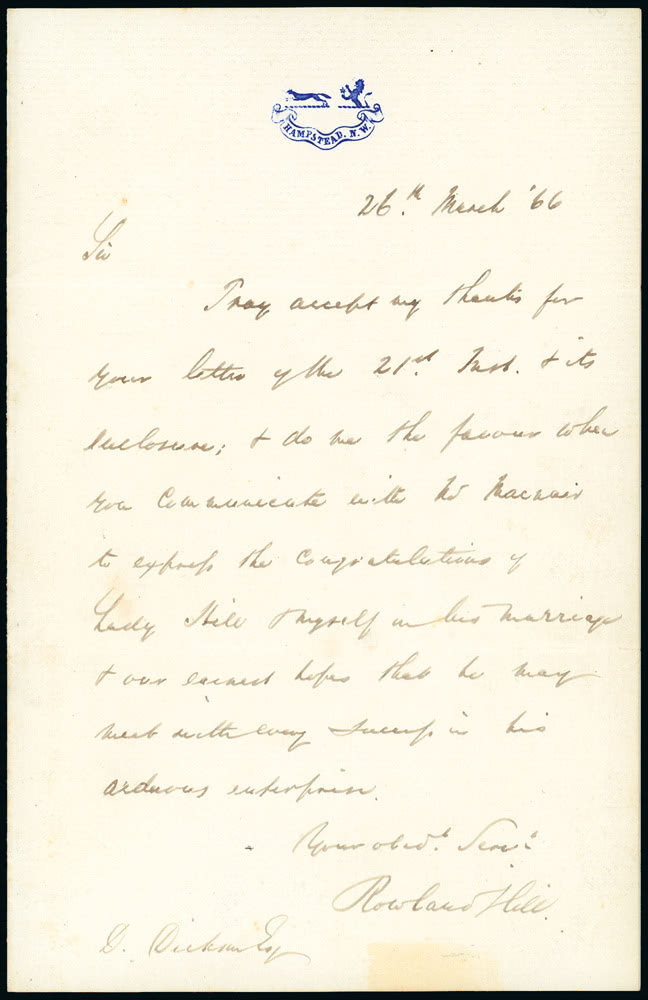 HAMPSTEAD. N.W.
26th March '66
Sir
Pray accept my thanks for
your letter of the 21st. Inst. & its
enclosure; & do me the favour when
you communicate with Mr Macnair
to express the congratulations of
Lady Hill & myself on his marriage
& our earnest hopes that he may
meet with every success in his
arduous enterprise.
Your obedt. Servt
Rowland Hill.
D. Dickson Esq